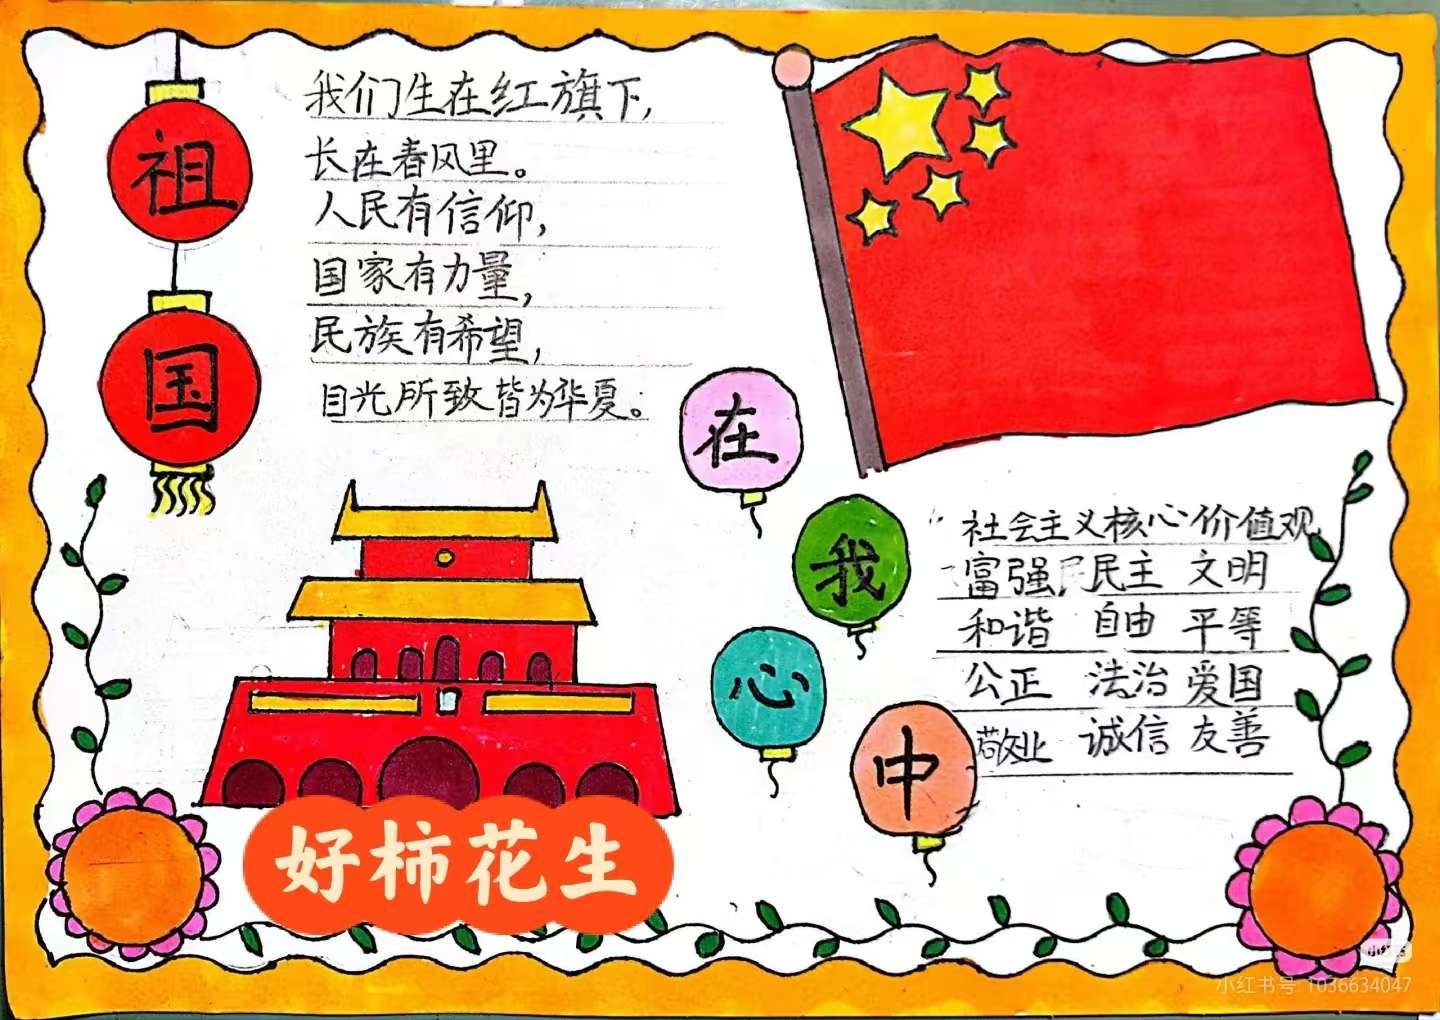 祖
国
我们生在红旗下，
长在春风里。
人民有信仰，
国家有力量，
民族有希望，
目光所致皆为华夏。
在
我
心
中
社会主义核心价值观
富强 民主 文明
和谐 自由 平等
公正 法治 爱国
敬业 诚信 友善
好柿花生
小红书
小红书号: 1036634047